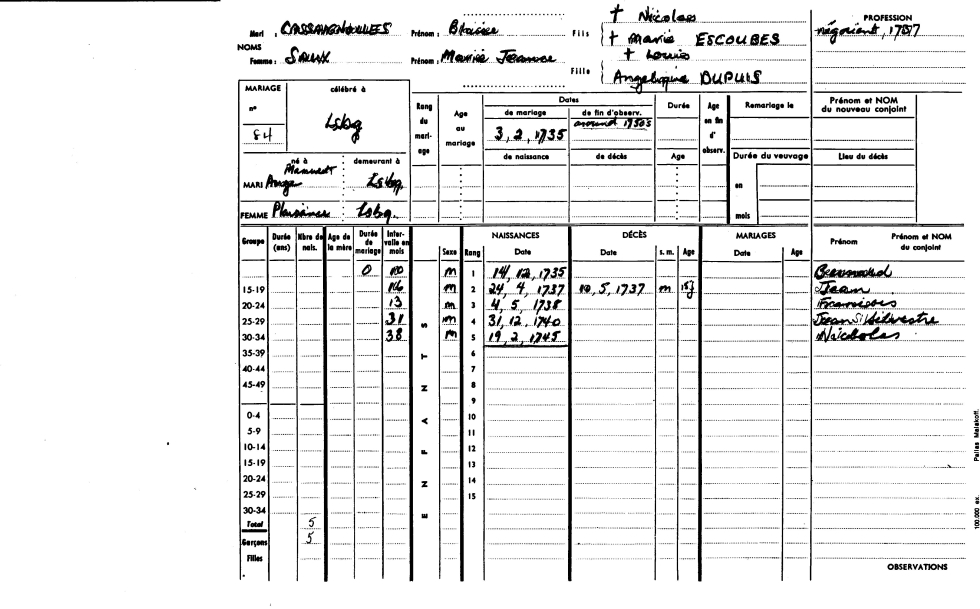 † Nicolas
PROFESSION
Mari : CASSAIGNOULLES Prénom : Blaise Fils † Marie ESCOUBES négociant, 1787
NOMS † Louis
Femme : SAUX Prénom : Marie Jeanne Fille Angelique DUPUIS
MARIAGE célébré à Rang du mariage Age au mariage Dates Durée Age en fin d'observ. Remariage le Prénom et NOM du nouveau conjoint
de mariage de fin d'observ.
n° 84 Lsbg 3, 2, 1735 around 1750s
de naissance de décès Age Durée du veuvage Lieu du décès
né à demeurant à
MARI Lsbg en
FEMME Plaisance Lsbg. mois
Groupe Durée (ans) Nbre de nais. Age de la mère Durée de mariage Intervalle en mois ENFANTS Sexe Rang NAISSANCES Date DÉCÈS Date s. m. Age MARIAGES Date Age Prénom Prénom et NOM du conjoint
0 10 m 1 14, 12, 1735 Bernard
15-19 16 m 2 24, 4, 1737 10, 5, 1737 m 15j Jean
20-24 13 m 3 4, 5, 1738 François
25-29 31 m 4 31, 12, 1740 Jean Silvestre
30-34 38 m 5 19, 2, 1745 Nicholas
35-39 6
40-44 7
45-49 8
9
0-4 10
5-9 11
10-14 12
15-19 13
20-24 14
25-29 15
30-34
Total 5
Garçons 5
Filles
OBSERVATIONS
100,000 ex. Pallas Malakoff.